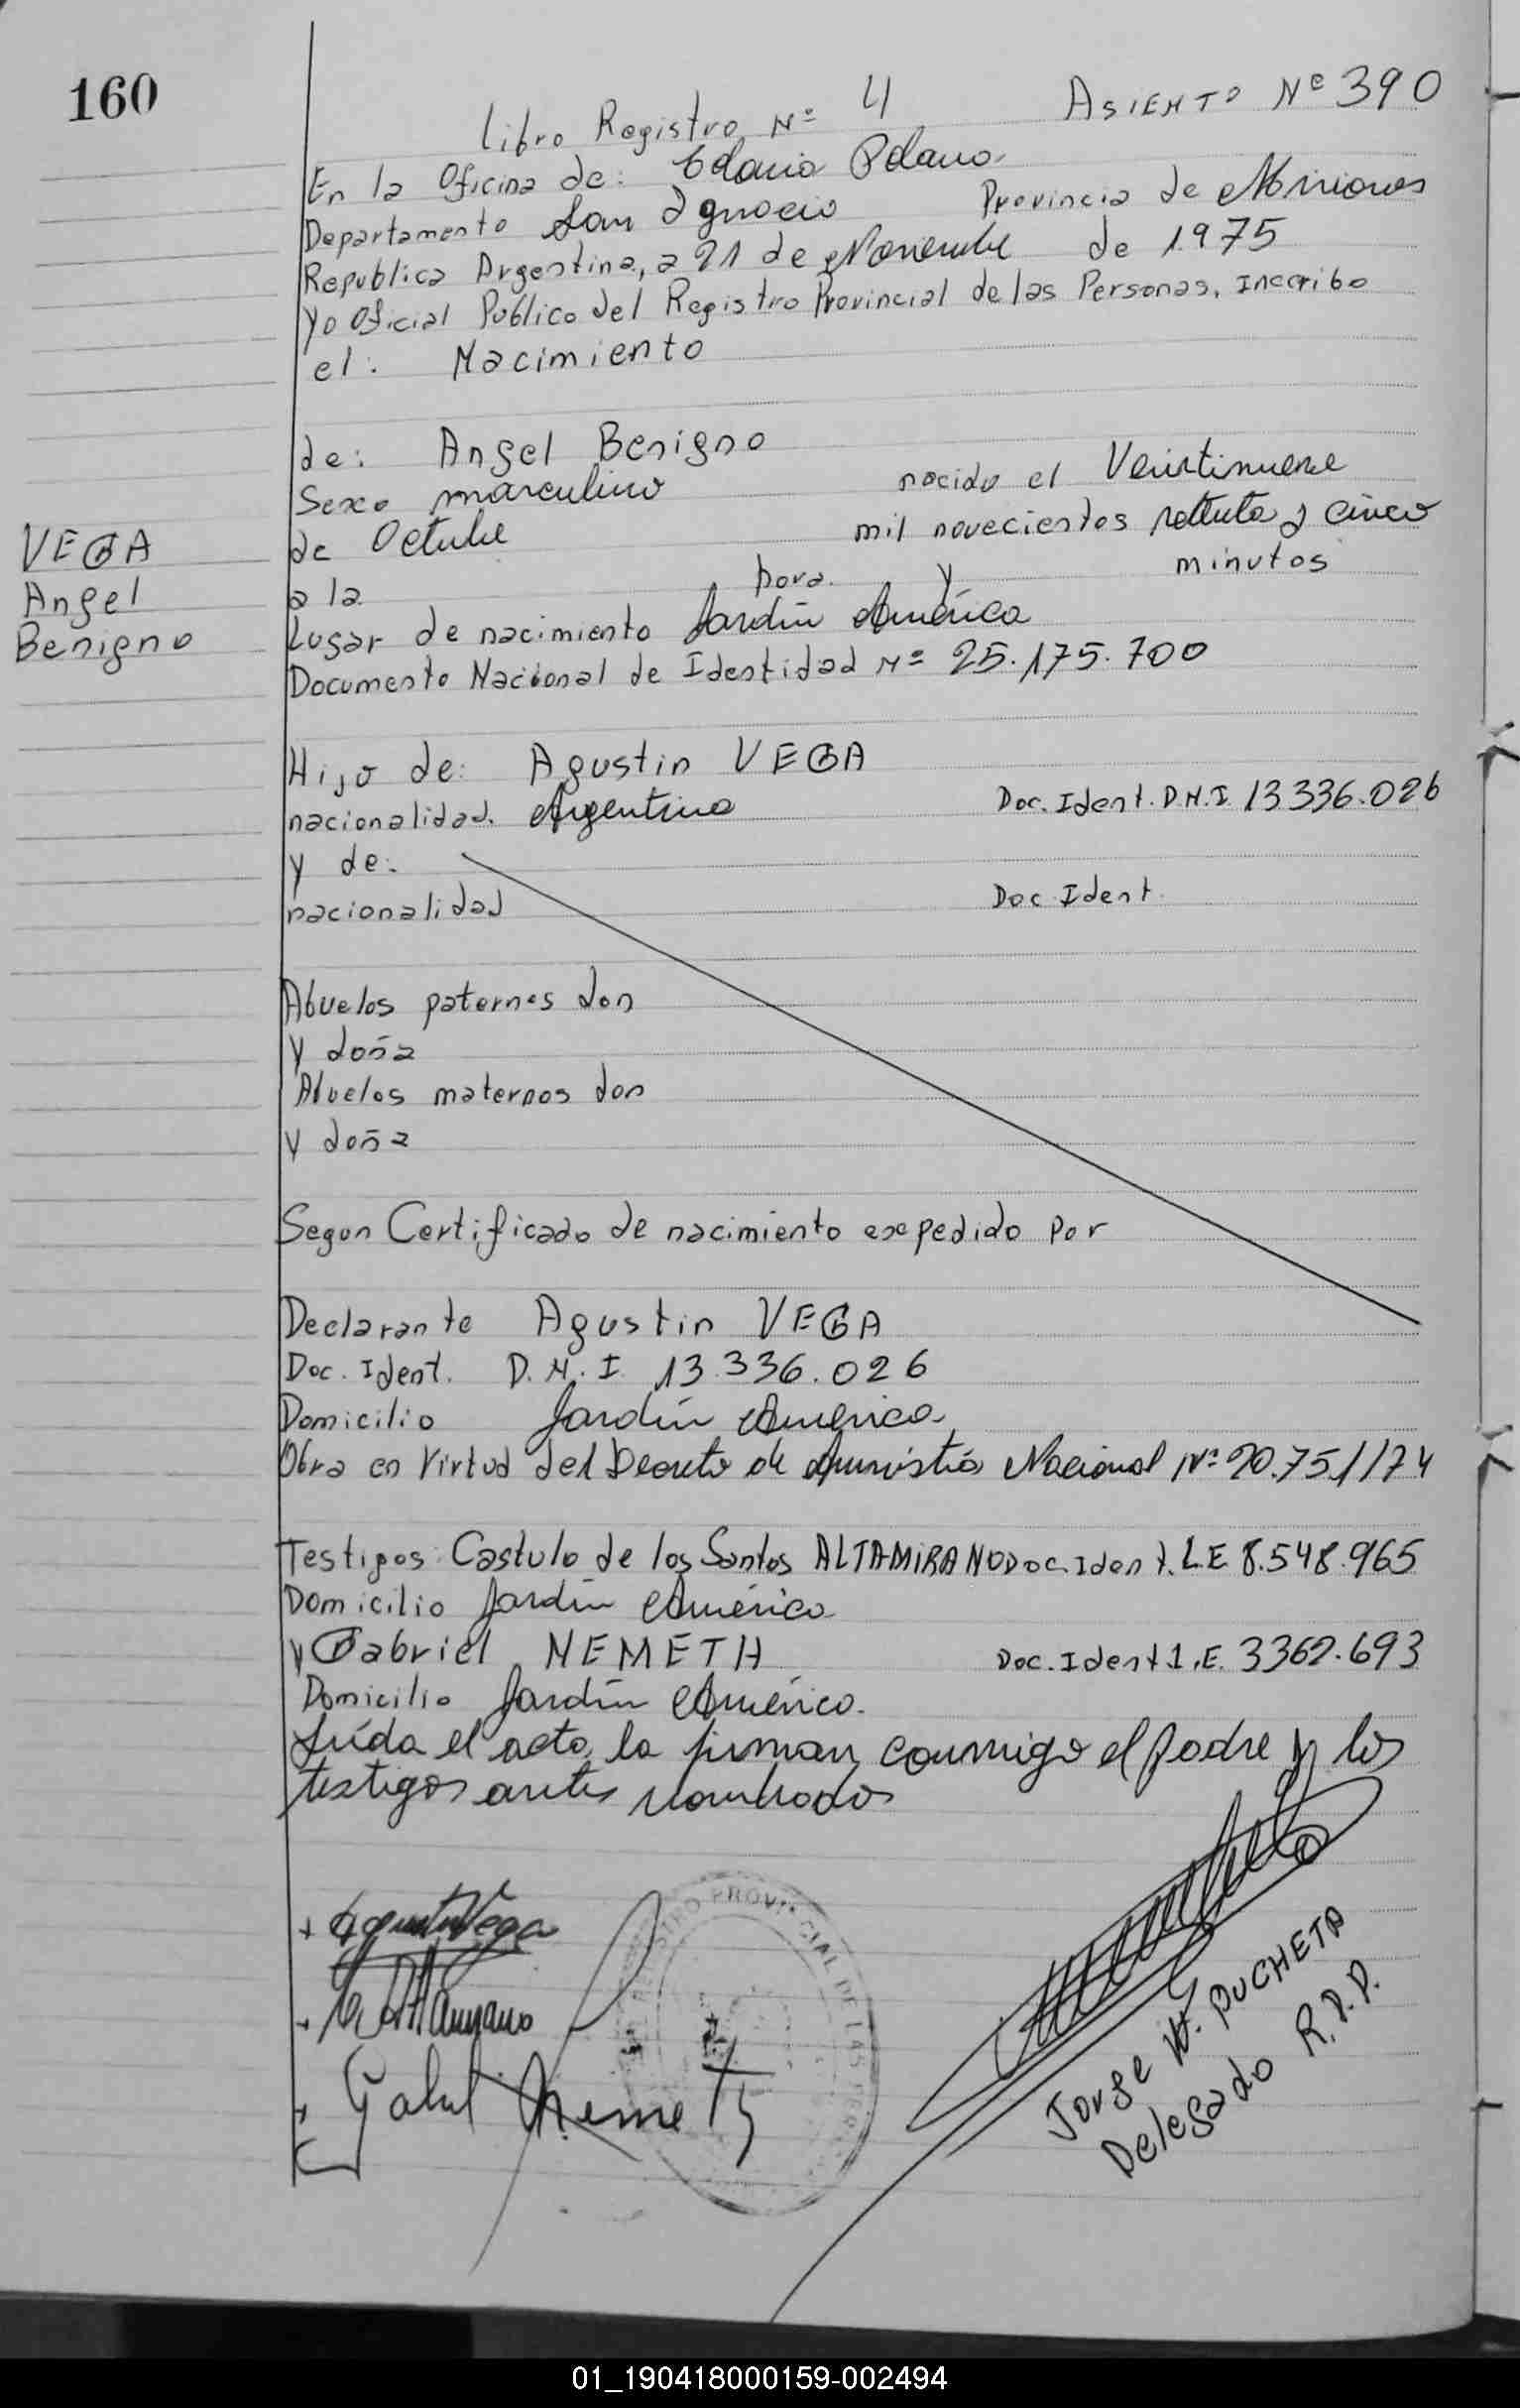 160
Libro Registro Nº 4 ASIENTO Nº 390
En la Oficina de:
Departamento San Ignacio Provincia de Misiones
Republica Argentina, a 21 de Noviembre de 1975
Yo Oficial Público del Registro Provincial de las Personas, Inscribo
el: Nacimiento
de: Angel Benigno
Sexo masculino nacido el Veintinueve
de Octubre mil novecientos setenta y cinco
a la hora y minutos
VEGA
Angel
Benigno
Lugar de nacimiento Jardín América
Documento Nacional de Identidad Nº 25.175.700
Hijo de: Agustin VEGA
nacionalidad. Argentino Doc. Ident. D.N.I. 13.336.026
y de:
nacionalidad Doc Ident.
Abuelos paternos don
y doña
Abuelos maternos don
y doña
Segun Certificado de nacimiento expedido por
Declarante Agustin VEGA
Doc. Ident. D.N.I. 13.336.026
Domicilio Jardín América
Obra en Virtud del Decreto de Amnistía Nacional Nº 20.751/74
Testigos: Castulo de los Santos ALTAMIRANO Doc. Ident. L.E 8.548.965
Domicilio Jardín América
y Gabriel NEMETH Doc. Ident L.E. 3362.693
Domicilio Jardín América.
Leída el acta, la firman conmigo el padre y los
testigos antes nombrados
Agustin Vega
Altamirano
REGISTRO PROVINCIAL DE LAS PERSONAS
Gabriel Nemeth
Jorge W. PUCHETA
Delegado R.P.P.
01_190418000159-002494